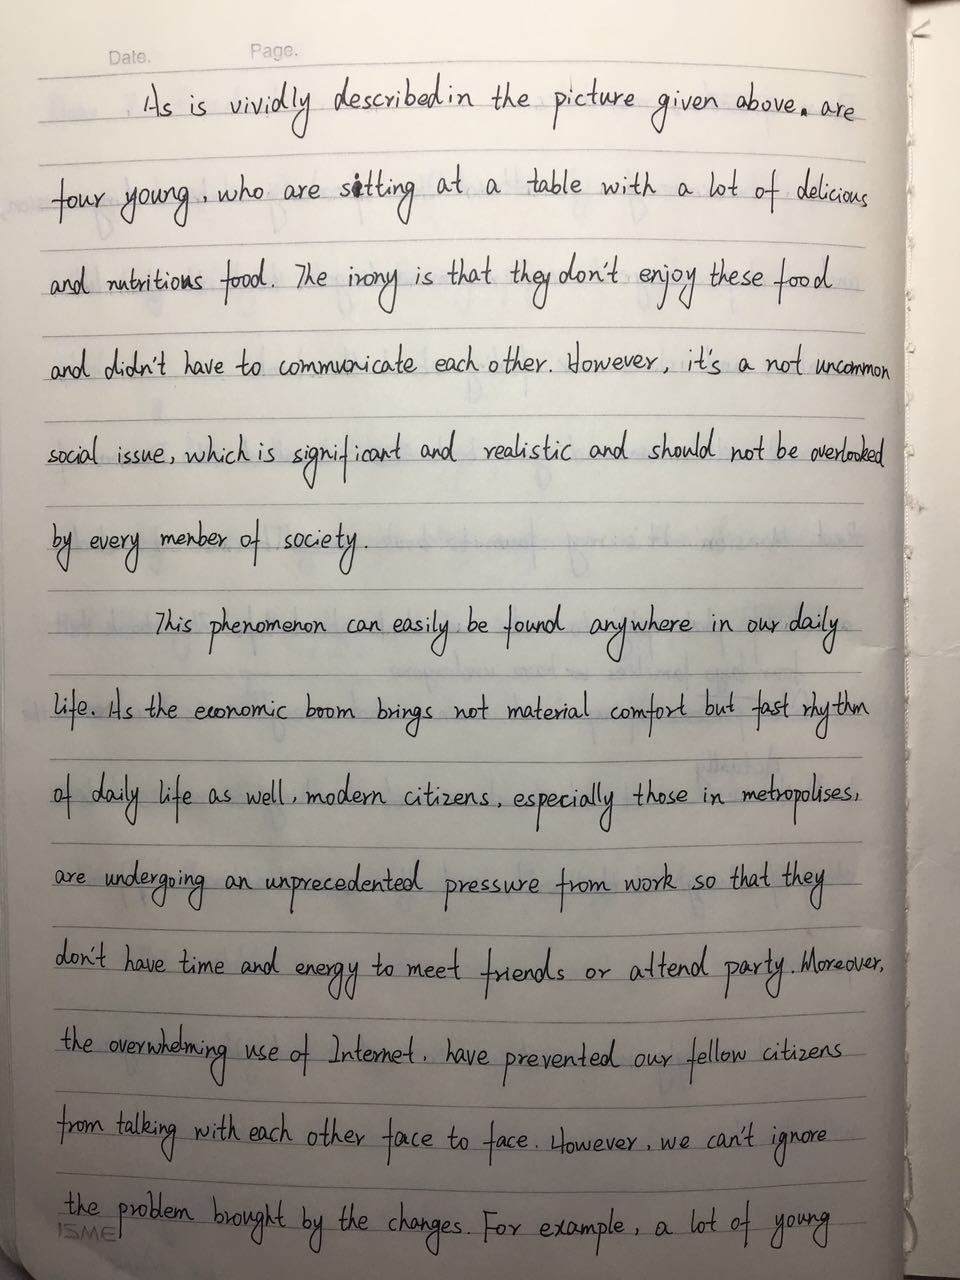 Date. Page.
As is vividly described in the picture given above, are
four young, who are sitting at a table with a lot of delicious
and nutritious food. The irony is that they don't enjoy these food
and didn't have to communicate each other. However, it's a not uncommon
social issue, which is significant and realistic and should not be overlooked
by every menber of society.
This phenomenon can easily be found anywhere in our daily
life. As the economic boom brings not material comfort but fast rhythm
of daily life as well, modern citizens, especially those in metropolises,
are undergoing an unprecedented pressure from work so that they
don't have time and energy to meet friends or attend party. Moreover,
the overwhelming use of Internet, have prevented our fellow citizens
from talking with each other face to face. However, we can't ignore
the problem brought by the changes. For example, a lot of young
ISME